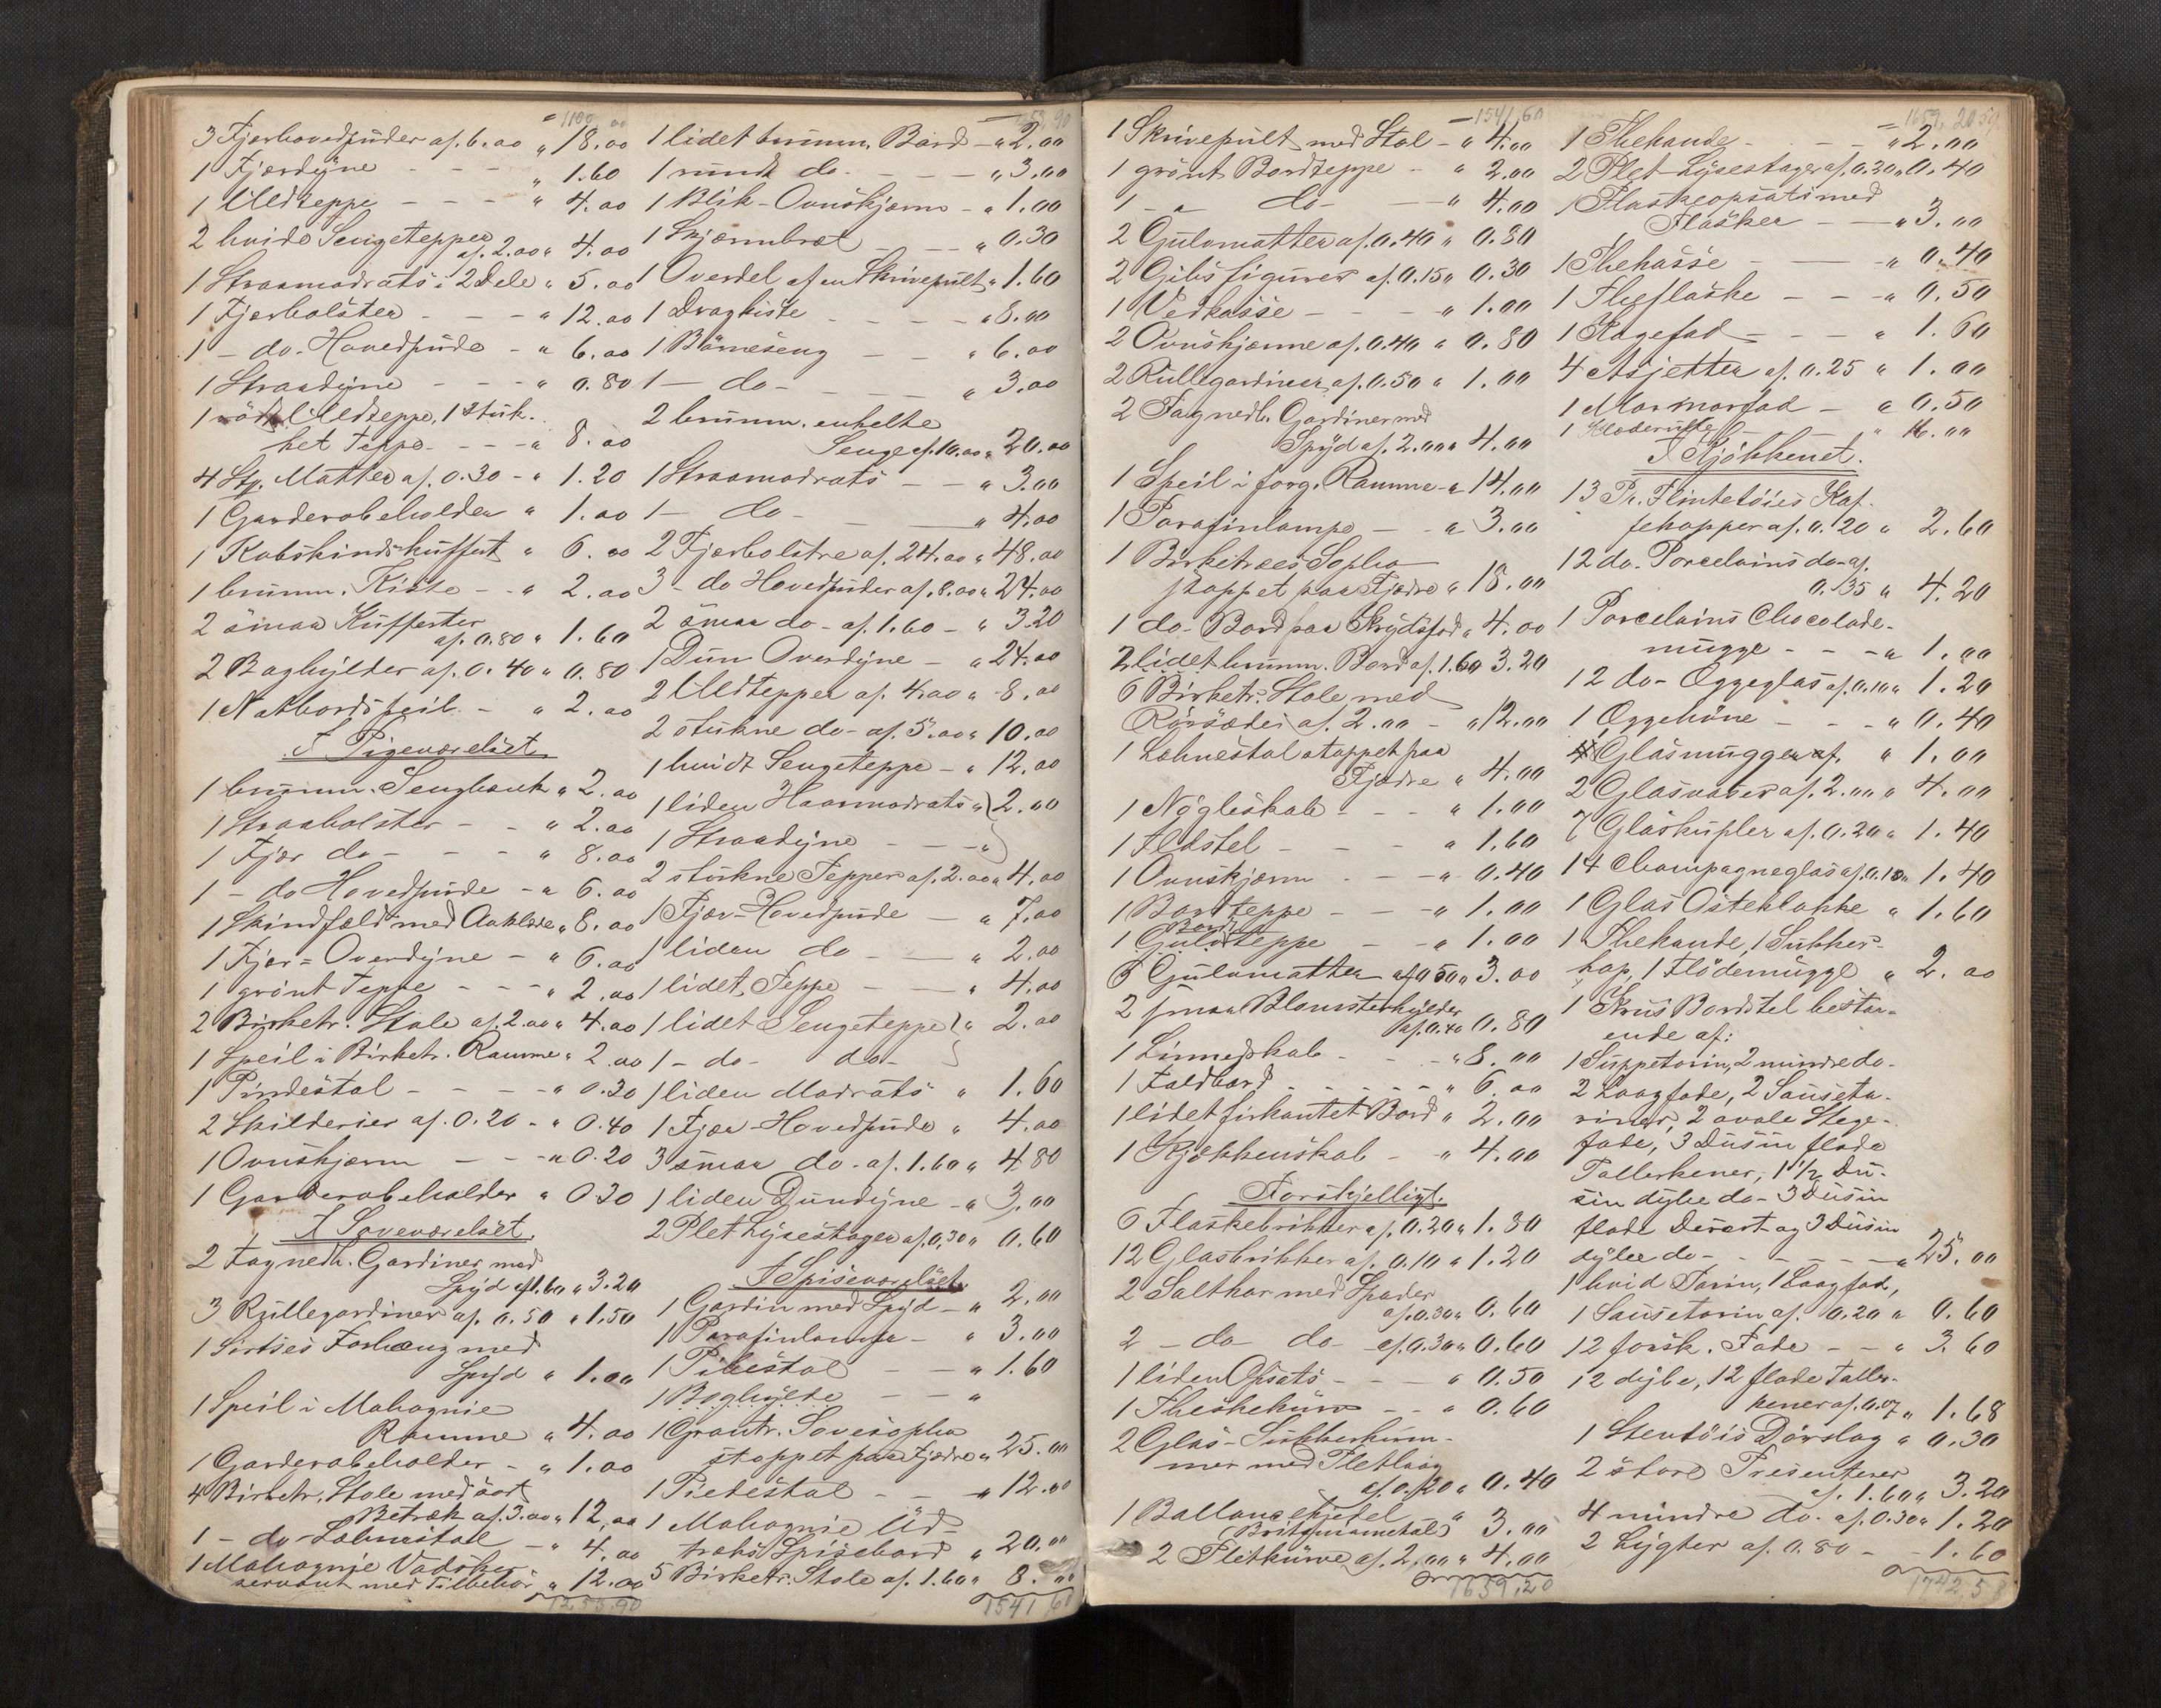 1100,00
3 Fjærhovedpuder af. 6.00 " 18.00
1 Fjærdyne - - - " 1.60
1 Uldteppe - - - " 4.00
2 hvide Sengetepper
af. 2.00 " 4.00
1 Straamadrats i 2 Dele " 5.00
1 Fjærbolster - - - " 12.00
1 - do - Hovedpude - " 6.00
1 Straadyne - - - " 0.80
1 rödt Uldteppe, 1 Stuk-
ket Teppe - - - " 8.00
4 Stp. Matter af. 0.30 - " 1.20
1 Garderobeholder " 1.00
1 Kobskindskuffert " 6.00
1 brunm. Kiste - - " 2.00
2 smaa Kufferter
af. 0.80 " 1.60
2 Boghylder af. 0.40 " 0.80
1 Natbordspeil - " 2.00
I Pigeværelset
1 brunm. Sengbænk " 2.00
1 Straabolster - - " 2.00
1 Fjær do - - - " 8.00
1 - do Hovedpude - " 6.00
1 Skindfeld med Aaklæde " 8.00
1 Fjær-Overdyne - " 6.00
1 grönt Teppe - - - " 2.00
2 Birketr. Stole af. 2.00 " 4.00
1 Speil i Birketr. Ramme " 2.00
1 Pindestol - - - - " 0.30
2 Skilderier af. 0.20 - " 0.40
1 Ovnskjærm - - - " 0.20
1 Garderobeholder " 0.30
I Soveværelset.
2 Fag nedh. Gardiner med
Spyd af 1.60 " 3.20
3 Rullegardiner af. 0.50 " 1.50
1 Sirtses Forhæng med
Spyd " 1.00
1 Speil i Mahognie
Ramme " 4.00
1 Garderobeholder - " 1.00
4 Birketr. Stole med sort
Betræk af. 3.00 " 12.00
1 - do - Lænestol - " 4.00
1 Mahognie Vadske-
servant med Tilbehör " 12.00
1253,90
1 lidet brunm. Bord - " 2.00
1 rundt do - - - - " 3.00
1 Blik-Ovnskjærm - " 1.00
1 Skjærmbræt - - - " 0.30
1 Overdel af en Skrivepult " 1.60
1 Dragkiste - - - - " 8.00
1 Börneseng - - " 6.00
1 - do - - - - " 3.00
2 brunm. enkelte
Senge af. 10.00 " 20.00
1 Straamadrats - - " 3.00
1 - do - - - " 4.00
2 Fjærbolstre af. 24.00 " 48.00
3 - do Hovedpuder af. 8.00 " 24.00
2 smaa do - af. 1.60 - " 3.20
1 Dun Overdyne - " 24.00
2 Uldtepper af. 4.00 " 8.00
2 stukne do - af. 5.00 " 10.00
1 hvidt Sengeteppe - " 12.00
1 liden Haarmadrats " } 2.00
1 Straadyne - - - " }
2 stukne Tepper af. 2.00 " 4.00
1 Fjær-Hovedpude - " 7.00
1 liden do - - " 2.00
1 lidet Teppe - - " 4.00
1 lidet Sengeteppe } " 2.00
1 - do - do - }
1 liden Madrats " 1.60
1 Fjær-Hovedpude " 4.00
3 smaa do - af. 1.60 " 4.80
1 liden Dundyne - " 3.00
2 Plet Lysestager af. 0.30 " 0.60
I Spiseværelset
1 Gardin med Spyd - " 2.00
1 Parafinlampe - " 3.00
1 Pibestol - - " 1.60
1 Boghylde - - "
1 Grantr. Sovesopha
stoppet paa Fjædre " 25.00
1 Piedestal - - " 12.00
1 Mahognie Ud-
træks Spisebord " 20.00
5 Birketr. Stole af. 1.60 " 8.00
1541,60
1541,60
1 Skrivepult med Stol - " 4.00
1 grönt Bordteppe - " 2.00
1 - " do - - " 4.00
2 Gulvmatter af. 0.40 " 0.80
2 Gibs figurer af. 0.15 " 0.30
1 Vedkasse - - - " 1.00
2 Ovnskjærme af. 0.40 " 0.80
2 Rullegardiner af. 0.50 " 1.00
2 Fag nedh. Gardiner med
Spyd af. 2.00 " 4.00
1 Speil i forg. Ramme - " 14.00
1 Parafinlampe - - " 3.00
1 Birketræes Sopha
stoppet paa Fjædre " 18.00
1 do - Bord paa Krydsfod " 4.00
2 lidet brunm. Bord af. 1.60 3.20
6 Birketr. Stole med
Rörsæder af. 2.00 - " 12.00
1 Lænestol stoppet paa
Fjædre " 4.00
1 Nögleskab - - - " 1.00
1 Ildstel - - - " 1.60
1 Ovnskjærm - - " 0.40
1 Bordteppe - - - " 1.00
Bord
1 Gulvteppe - - " 1.00
6 Gulvmatter af 0.50 " 3.00
2 smaa Blomsterhylder
af. 0.40 0.80
1 Linnedskab - - - " 8.00
1 Foldbord - - - - " 6.00
1 lidet firkantet Bord " 2.00
1 Kjøkkenskab - " 4.00
Forskjelligt.
6 Flaskebrikker af. 0.20 " 1.80
12 Glasbrikker af. 0.10 " 1.20
2 Saltkar med Spader
af. 0.30 " 0.60
2 - do do - af. 0.30 " 0.60
1 liden Opsats - - - " 0.50
1 Theskekurv - - " 0.60
2 Glas-Sukkerkum-
mer med Pletlaag
af. 0.20 " 0.40
1 Ballancekjedel
(Britaniametal) " 3.00
2 Pletkurve af. 2.00 " 4.00
1659,20
1659,20
1 Thekande - - - " 2.00
2 Plet-Lysestager af. 0.20 " 0.40
1 Flaskeopsats med
Flasker - - " 3.00
1 Thekasse - - " 0.40
1 Thyflaske - - - " 0.50
1 Kagefad - - - " 1.60
4 Asjetter af. 0.25 " 1.00
1 Marmorfad - " 0.50
1 Klæderulle - " 16.00
I Kjökkenet.
13 Pr. Flintetöies Kaf-
fekopper af. 0.20 " 2.60
12 do - Porcelains do - af.
0.35 " 4.20
1 Porcelains Chocolade-
mugge - - - " 1.00
12 do - Eggeglas af. 0.10 " 1.20
1 Eggehöne - - - " 0.40
4 Glasmugger af. " 1.00
2 Glasvaser af. 2.00 " 4.00
7 Glaskupler af. 0.20 " 1.40
14 Champagneglas af. 0.10 " 1.40
1 Glas Osteklokke " 1.60
1 Thekande, 1 Sukker-
kop, 1 Flödemugge " 2.00
1 Krus Bordstel bestaa-
ende af:
1 Suppeterin, 2 mindre do -
2 Laagfade, 2 Sauseta-
riner, 2 ovale Stege-
fade, 3 Dusin flade
Tallerkener, 1 1/2 Du-
sin dybe do - 3 Dusin
flade Desert og 3 Dusin
dybe do - - - - - " 25.00
1 hvid Tarin, 1 Laagfad,
1 Sausetarin af. 0.20 " 0.60
12 forsk. Fade - - " 3.60
12 dybe, 12 flade Taller-
kener af. 0.07 " 1.68
1 Stentöis Dörslag " 0.30
2 store Presenterer
af. 1.60 " 3.20
4 mindre do - af. 0.30 " 1.20
2 Lygter af. 0.80 - - 1.60
1742,58